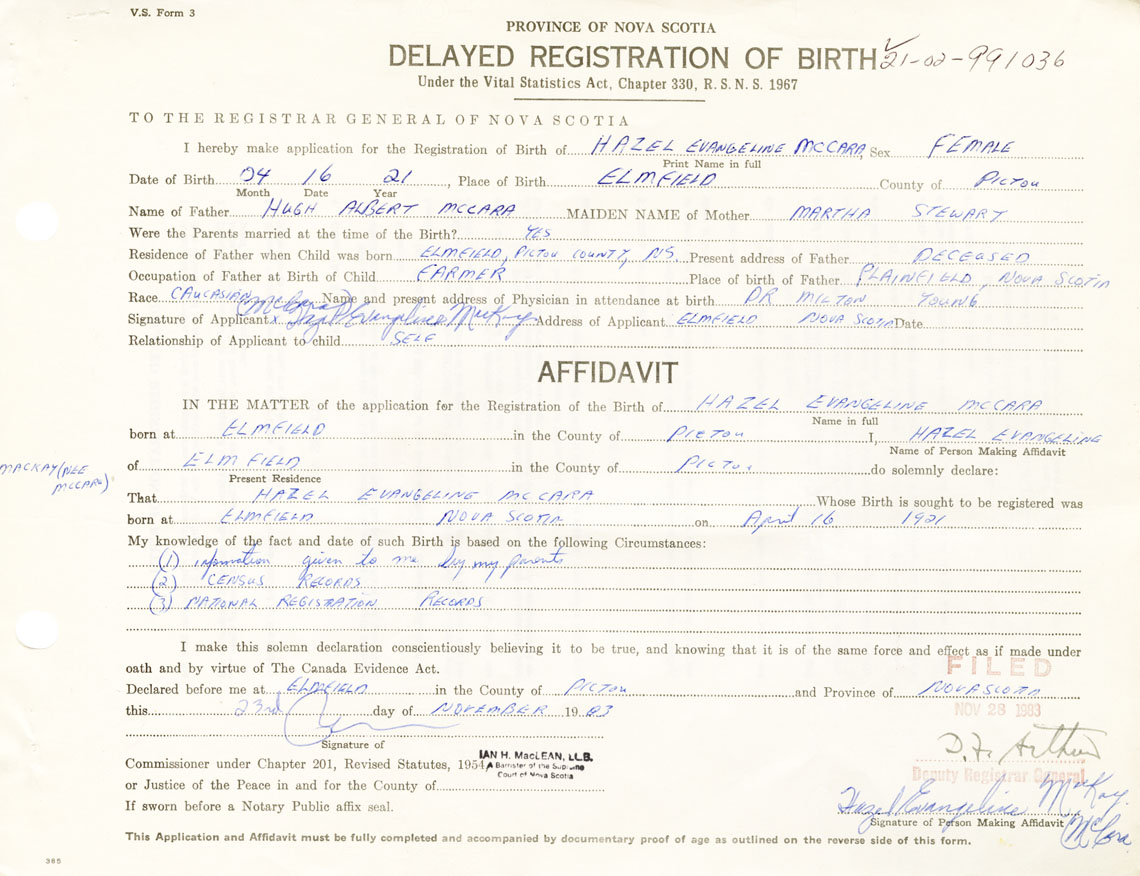 V.S. Form 3
PROVINCE OF NOVA SCOTIA
DELAYED REGISTRATION OF BIRTH 21-02-991036
Under the Vital Statistics Act, Chapter 330, R.S.N.S. 1967
TO THE REGISTRAR GENERAL OF NOVA SCOTIA
I hereby make application for the Registration of Birth of HAZEL EVANGELINE MCCARA, Sex FEMALE
Print Name in full
Date of Birth 04 16 21, Place of Birth ELMFIELD County of PICTOU
Month Date Year
Name of Father HUGH ALBERT MCCARA MAIDEN NAME of Mother MARTHA STEWART
Were the Parents married at the time of the Birth? YES
Residence of Father when Child was born ELMFIELD, PICTOU COUNTY, NS Present address of Father DECEASED
Occupation of Father at Birth of Child FARMER Place of birth of Father PLAINFIELD, NOVA SCOTIA
Race CAUCASIAN Name and present address of Physician in attendance at birth DR MILTON YOUNG
(McCara)
Signature of Applicant x Hazel Evangeline MacKay Address of Applicant ELMFIELD NOVA SCOTIA Date
Relationship of Applicant to child SELF
AFFIDAVIT
IN THE MATTER of the application for the Registration of the Birth of HAZEL EVANGELINE MCCARA
Name in full
born at ELMFIELD in the County of PICTOU I, HAZEL EVANGELINE
Name of Person Making Affidavit
MACKAY (NEE MCCARA)
of ELMFIELD in the County of PICTOU do solemnly declare:
Present Residence
That HAZEL EVANGELINE MCCARA Whose Birth is sought to be registered was
born at ELMFIELD NOVA SCOTIA on April 16 1921
My knowledge of the fact and date of such Birth is based on the following Circumstances:
(1) information given to me by my parents
(2) CENSUS RECORDS
(3) NATIONAL REGISTRATION RECORDS
I make this solemn declaration conscientiously believing it to be true, and knowing that it is of the same force and effect as if made under
oath and by virtue of The Canada Evidence Act.
FILED
Declared before me at ELMFIELD in the County of PICTOU and Province of NOVA SCOTIA
this 23rd day of NOVEMBER 1983
NOV 28 1983
Signature of
D.F. Arthur
Deputy Registrar General
Commissioner under Chapter 201, Revised Statutes, 1954,
IAN H. MacLEAN, LL.B.
A Barrister of the Supreme
Court of Nova Scotia
or Justice of the Peace in and for the County of
If sworn before a Notary Public affix seal.
Hazel Evangeline MacKay
Signature of Person Making Affidavit
McCara
This Application and Affidavit must be fully completed and accompanied by documentary proof of age as outlined on the reverse side of this form.
385